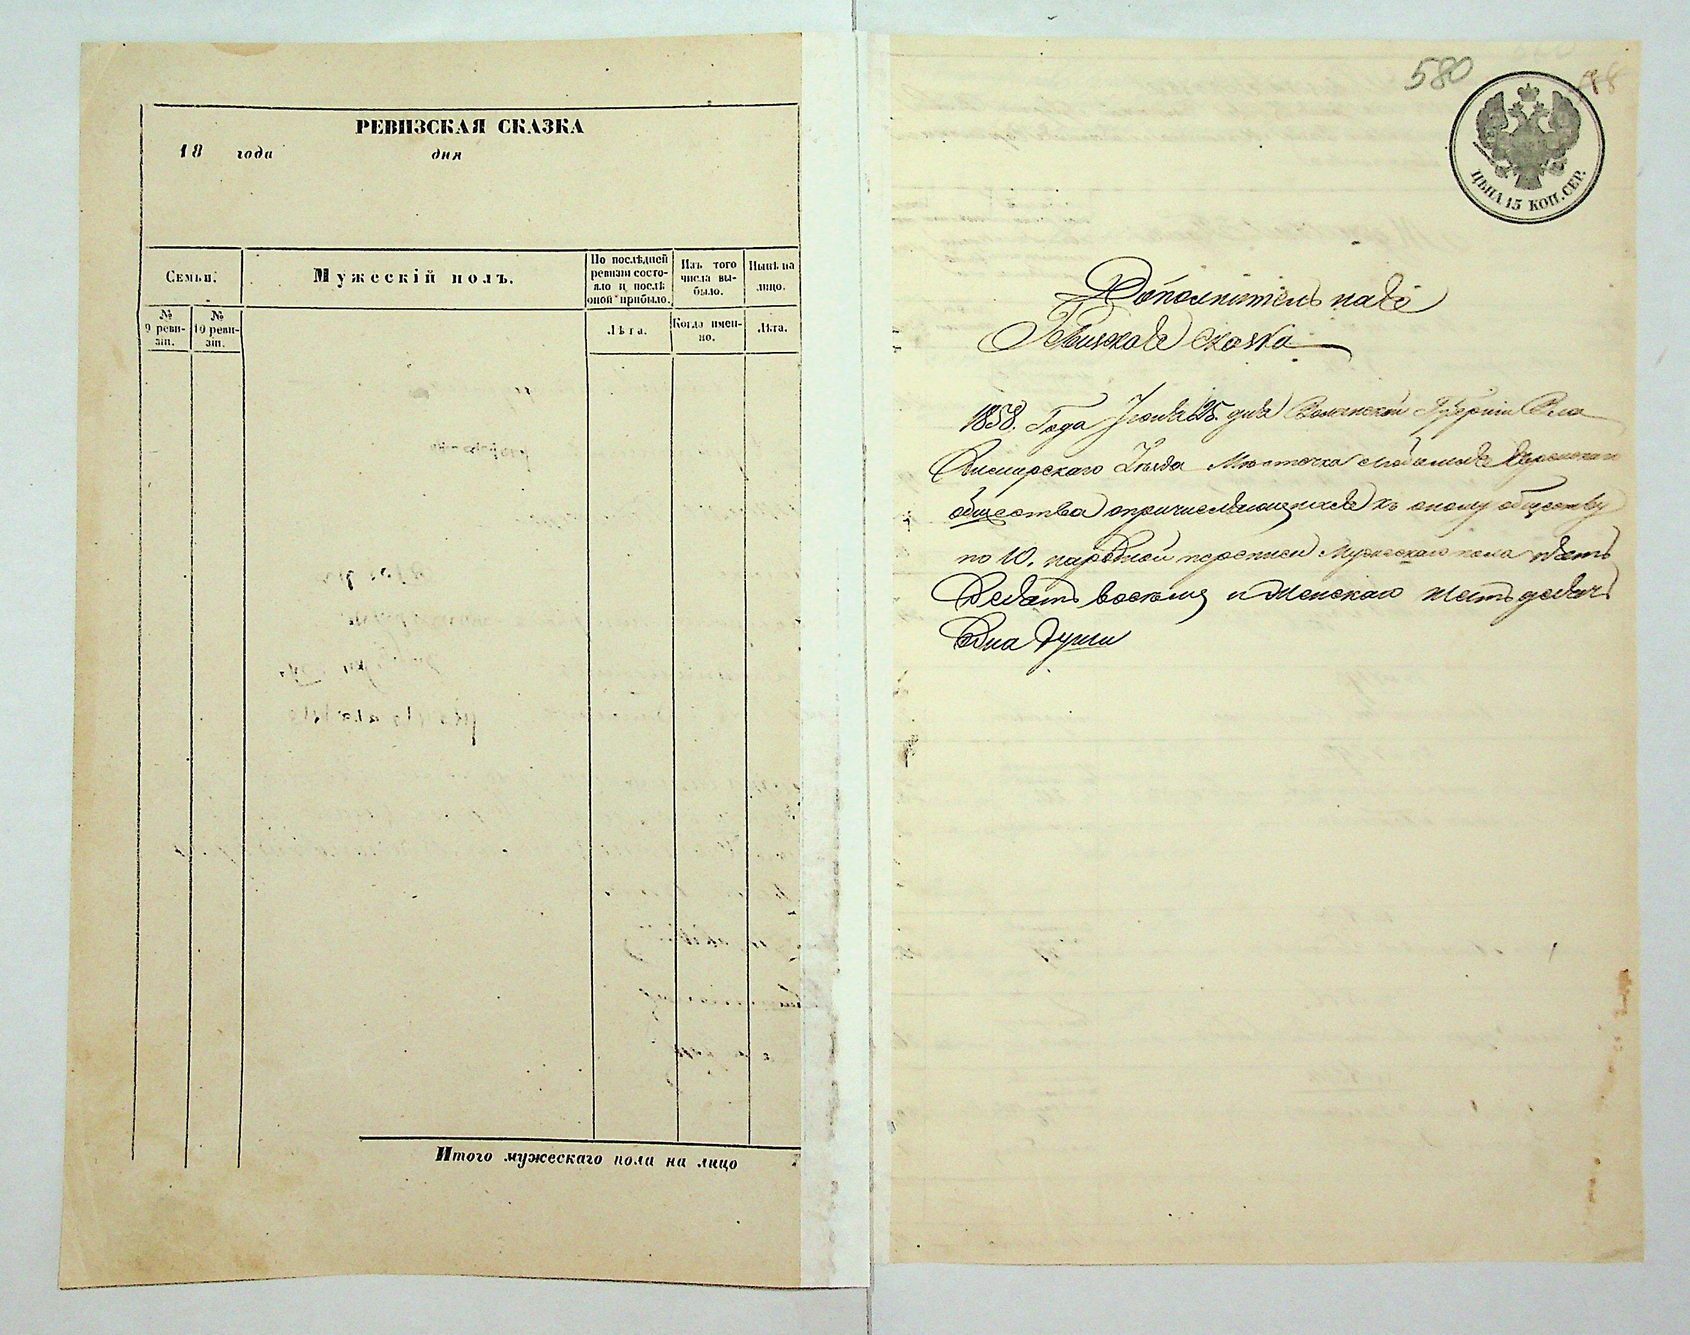 РЕВИЗСКАЯ СКАЗКА
18 года дня
Семьи.
Мужескій полъ.
По послѣдней ревизіи состояло и послѣ оной прибыло.
Изъ того числа выбыло.
Нынѣ на лицо.
№ 9 ревизіи.
№ 10 ревизіи.
Лѣта.
Когда именно.
Лѣта.
Итого мужескаго пола на лицо
580
ЦѢНА 15 КОП. СЕР.
Дополнительная
Ревизская сказка
1858. Года Іюня 25. дня Волынской Губерніи Вла
димирскаго Уезда Местечка Любомля Еврейскаго
общества о причисляющихся къ оному обществу
по 10. народной переписи Мужескаго пола пять
десять восемь и Женскаго пять десять
Една души